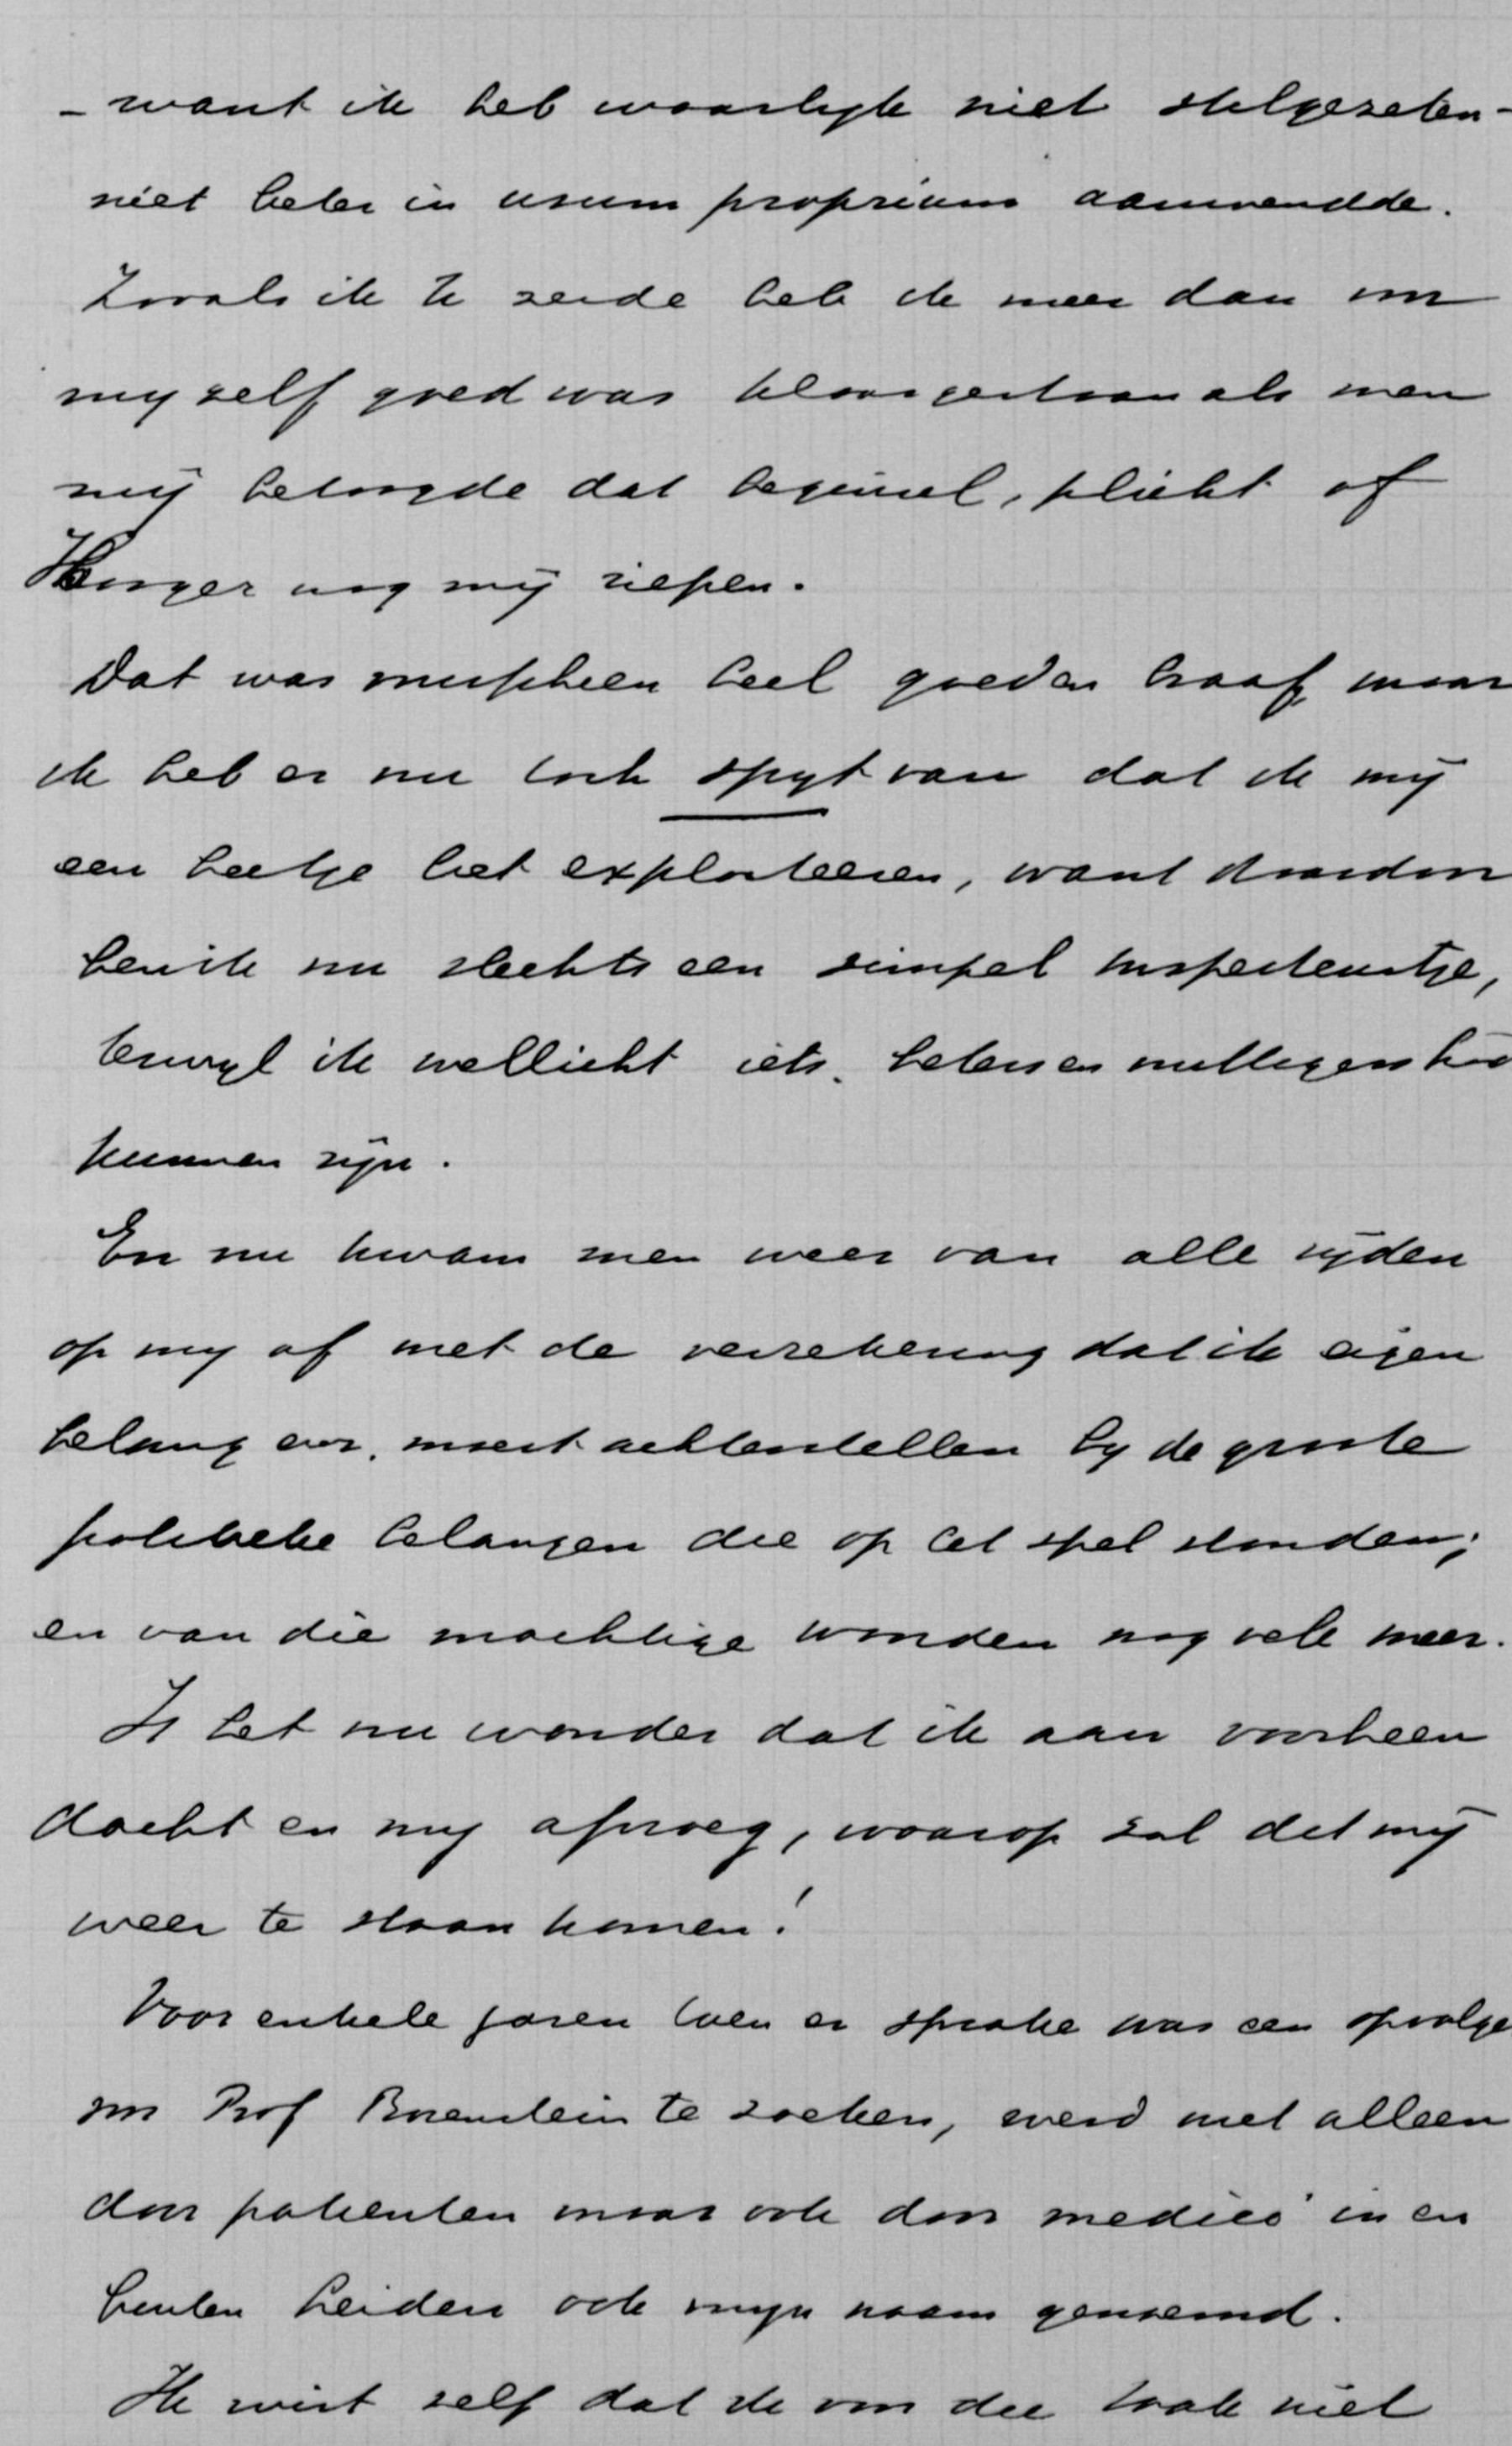 – want ik heb waarlyk niet stilgezeten –
niet beter in usum proprium aanwendde.
Zooals ik U zeide heb ik meer dan voor
my zelf goed was klaargestaan als men
mij betoogde dat beginsel, plicht of
Hooger nog mij riepen.
Dat was misschien heel goed en braaf, maar
ik heb er nu toch spyt van dat ik mij
een beetje liet exploiteeren, want daardoor
ben ik nu slechts een simpel inspecteurtje,
terwyl ik wellicht iets beters en nuttigers had
kunnen zijn.
En nu kwam men weer van alle zijden
op my af met de verzekering dat ik eigen
belang moest achterstellen by de groote
politieke belangen die op het spel stonden;
en van die machtige woorden nog vele meer.
Is het nu wonder dat ik aan voorheen
dacht en my afvroeg, waarop zal dit mij
weer te staan komen!
Voor enkele jaren toen er sprake was een opvolger
voor Prof te zoeken, werd niet alleen
door patienten maar ook door medici in en
buiten Leiden ook mijn naam genoemd.
Ik wist zelf dat ik voor die taak niet